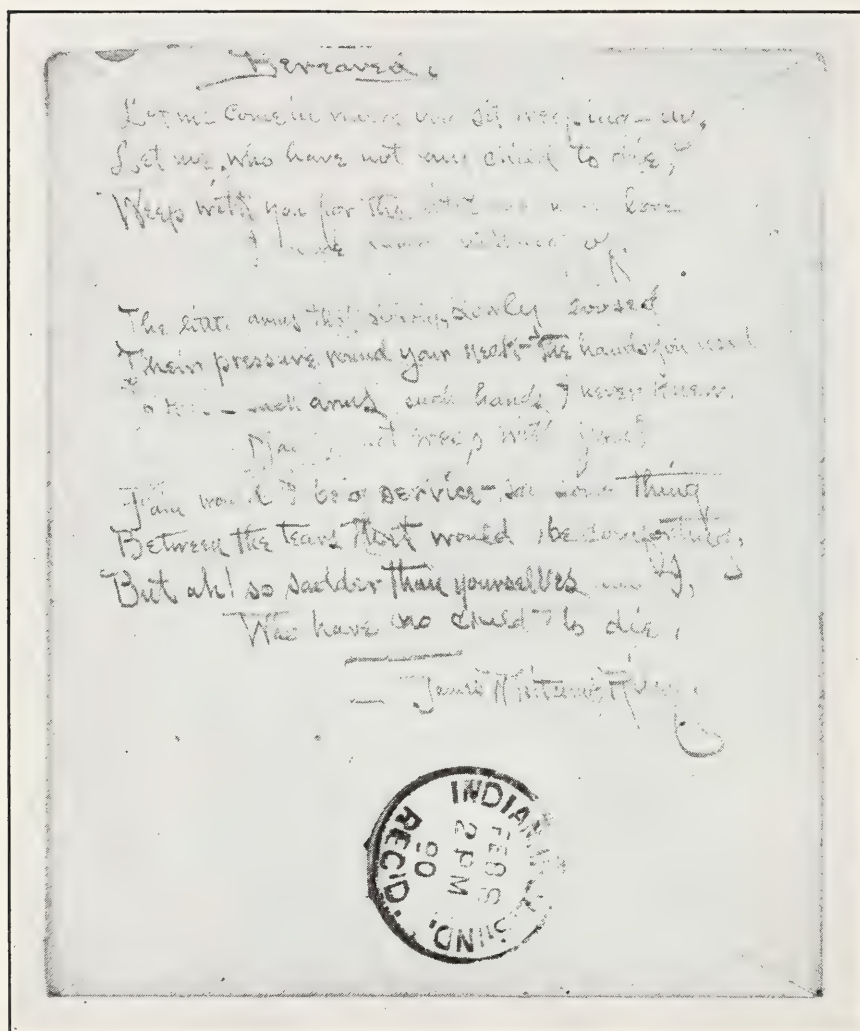 Bereaved.
Let me come in where you sit weeping— ay,
Let me, who have not any child to die,
Weep with you for the little one whose love
I have known nothing of
The little arms that slowly, slowly loosed
Their pressure round your neck— the hands you used
To kiss— such arms such hands I never knew.
May I not weep with you?
Fain would I be of service— say some thing
Between the tears that would be comforting,
But ah! so sadder than yourselves am I,
Who have no child to die.
— James Whitcomb Riley.
INDIANAPOLIS, IND.
FEB
2 PM
90
REC'D.